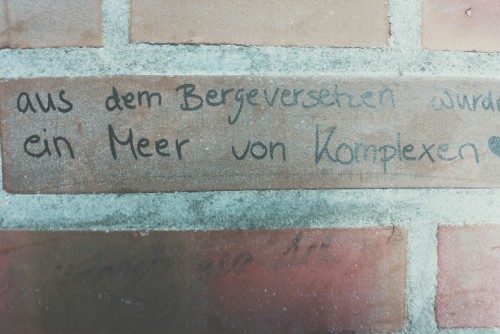 aus dem Bergeversetzen wurde
ein Meer von Komplexen